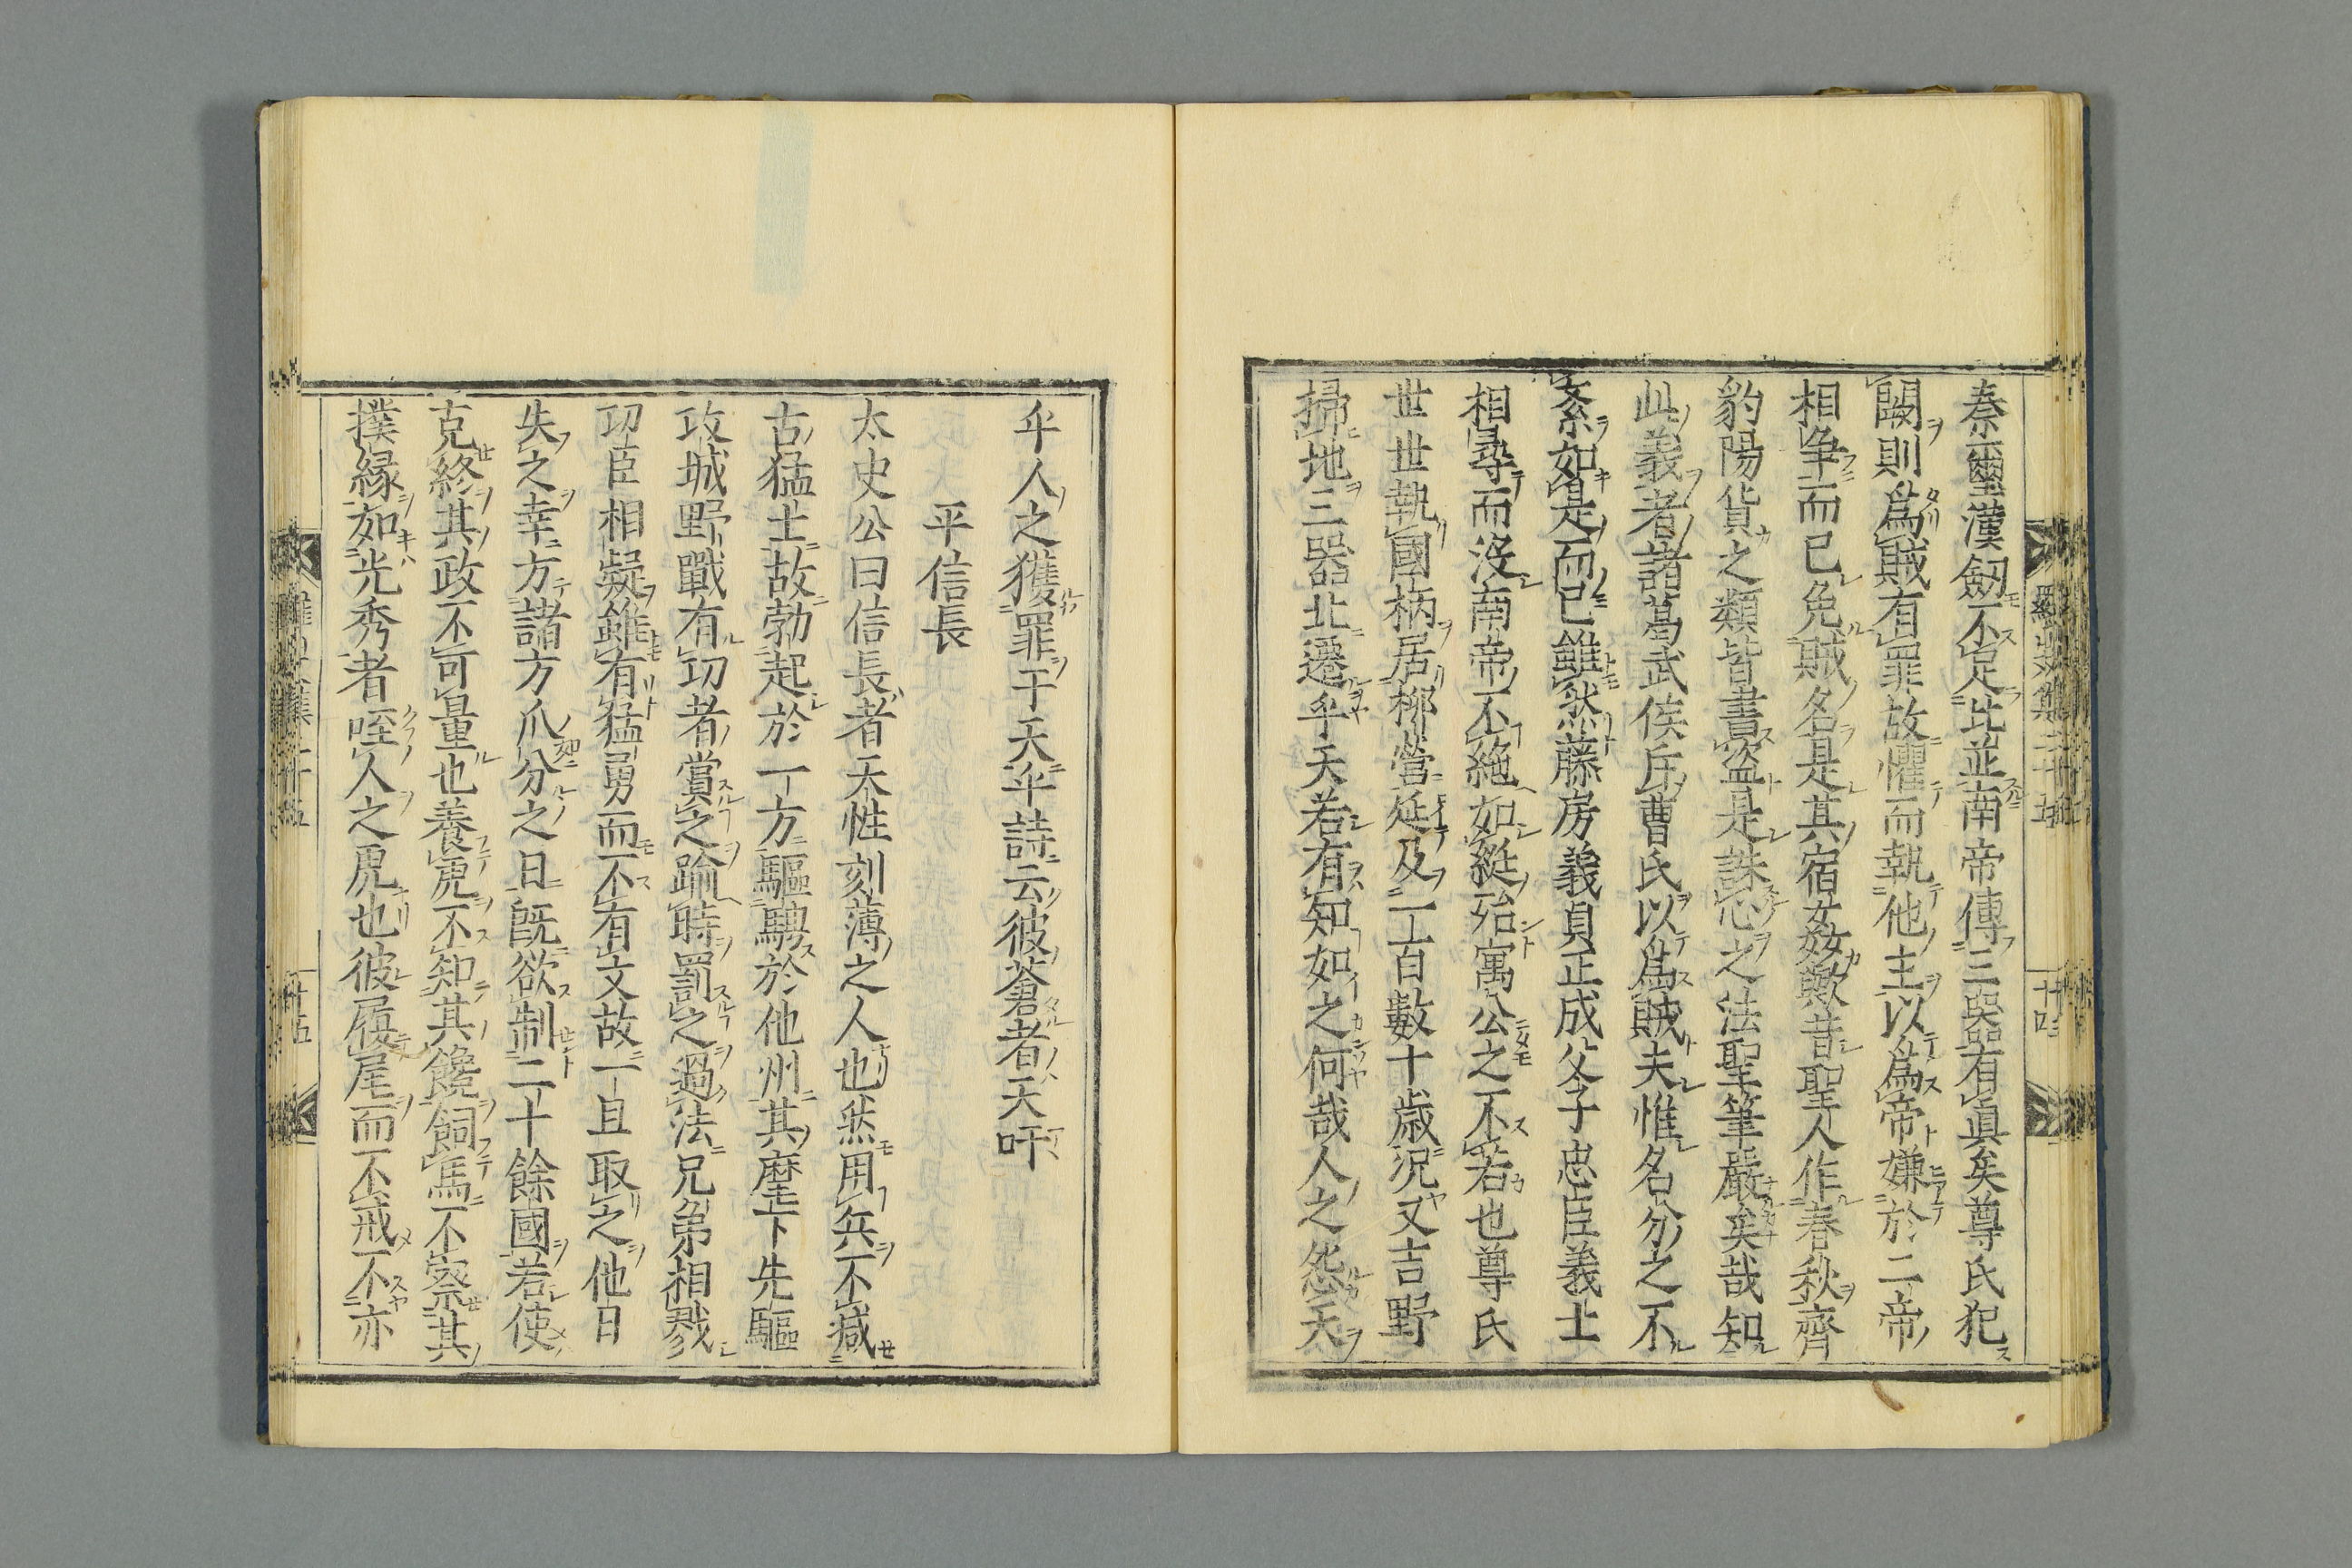 秦璽漢劒不足此並南帝傳三器有眞矣尊氏犯
闕則爲賊有罪故懼而執他主以爲帝嫌於二帝
相爭而已免賊名是其宿姦歟昔聖人作春秋齊
豹陽貨之類皆書盜是誅心之法聖筆嚴矣哉知
此義者諸葛武侯斥曹氏以爲賊夫惟名分之不
紊如是而已雖然藤房義貞正成父子忠臣義士
相尋而沒南帝不絶如綖殆寓公之不若也尊氏
世世執國柄居柳營延及二百數十歳況又吉野
掃地三器北遷乎天若有知如之何哉人之怨天
乎人之獲罪于天乎詩云彼蒼者天吁
平信長
太史公曰信長者天性刻薄之人也然用兵不减
古猛士故勃起於一方驅騁於他州其麾下先驅
攻城野戰有功者賞之踰時罰之過法兄弟相戮
功臣相疑雖有猛勇而不有文故一旦取之他日
失之幸方諸方爪分之日既欲制二十餘國若使
克終其政不可量也養虎不知其饞飼馬不察其
撲縁如光秀者咥人之虎也彼履尾而不戒不亦
十四
十五